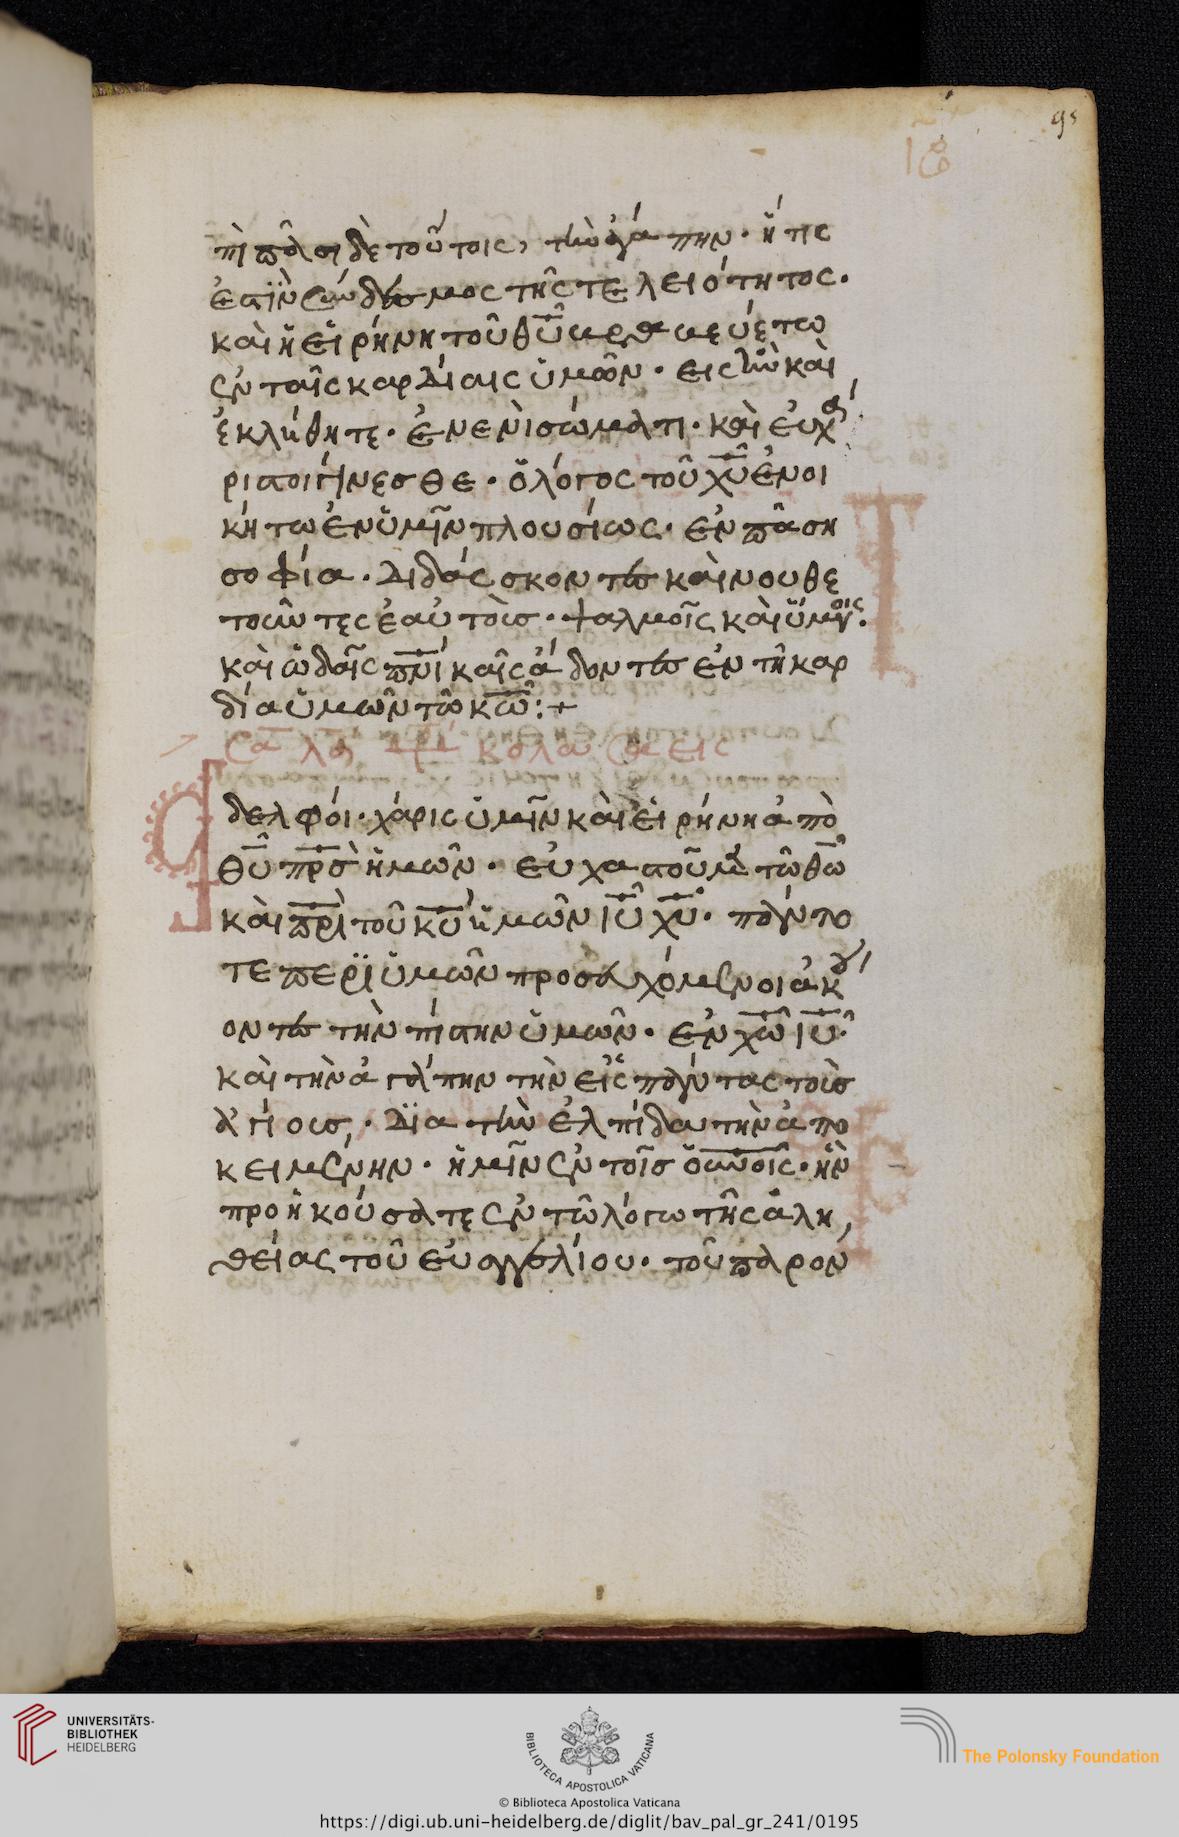 95
ιβ
πὶ πᾶσι δὲ τούτοις, τὴν ἀγάπην· ἥτις
ἐστὶν σύνδεσμος τῆς τελειότητος.
καὶ ἡ εἰρήνη τοῦ θῦ βραβευέτω
ἐν ταῖς καρδίαις ὑμῶν· εις ἣν καὶ
ἐκλήθητε· ἐν ἑνὶ σώματι· καὶ εὐχά
ριστοι γίνεσθε· ὁ λόγος τοῦ χῦ ἐνοι
κήτω ἐν ὑμῖν πλουσίως· ἐν πάση
σοφία· διδάσκοντες καὶ νουθε
τοῦντες ἑαυτοὺς· ψαλμοῖς καὶ ὕμνοις.
καὶ ὠδαῖς πνικαῖς ἄδοντες ἐν τῆ καρ
δία ὑμῶν τῶ κῶ:+
κολασσαεις
Ἀδελφοί· χάρις ὑμῖν καὶ εἰρήνη ἀπὸ
θῦ πρσ ἡμῶν· εὐχαστοῦμεν τῶ θῶ
καὶ πρὶ τοῦ κῦ ἡμῶν ἰῦ χῦ· πάντο
τε περὶ ὑμῶν προσευχόμενοι ἀκού
οντες τὴν πίστην ὑμῶν· ἐν χῶ ἰῦ·
καὶ τὴν ἀγάπην τὴν εἰς πάντας τοὺς
ἁγίους,· δϊα τὴν ἐλπίδαν τὴν ἀπο
κειμένην· ἡμῖν ἐν τοῖς οὐνοῖς· ἣν
προηκούσατε ἐν τῶ λόγω τῆς ἀλη,
θείας τοῦ εὐαγγελίου· τοῦ παρον
UNIVERSITÄTS-
BIBLIOTHEK
HEIDELBERG
BIBLIOTECA APOSTOLICA VATICANA
The Polonsky Foundation
© Biblioteca Apostolica Vaticana
https://digi.ub.uni-heidelberg.de/diglit/bav_pal_gr_241/0195